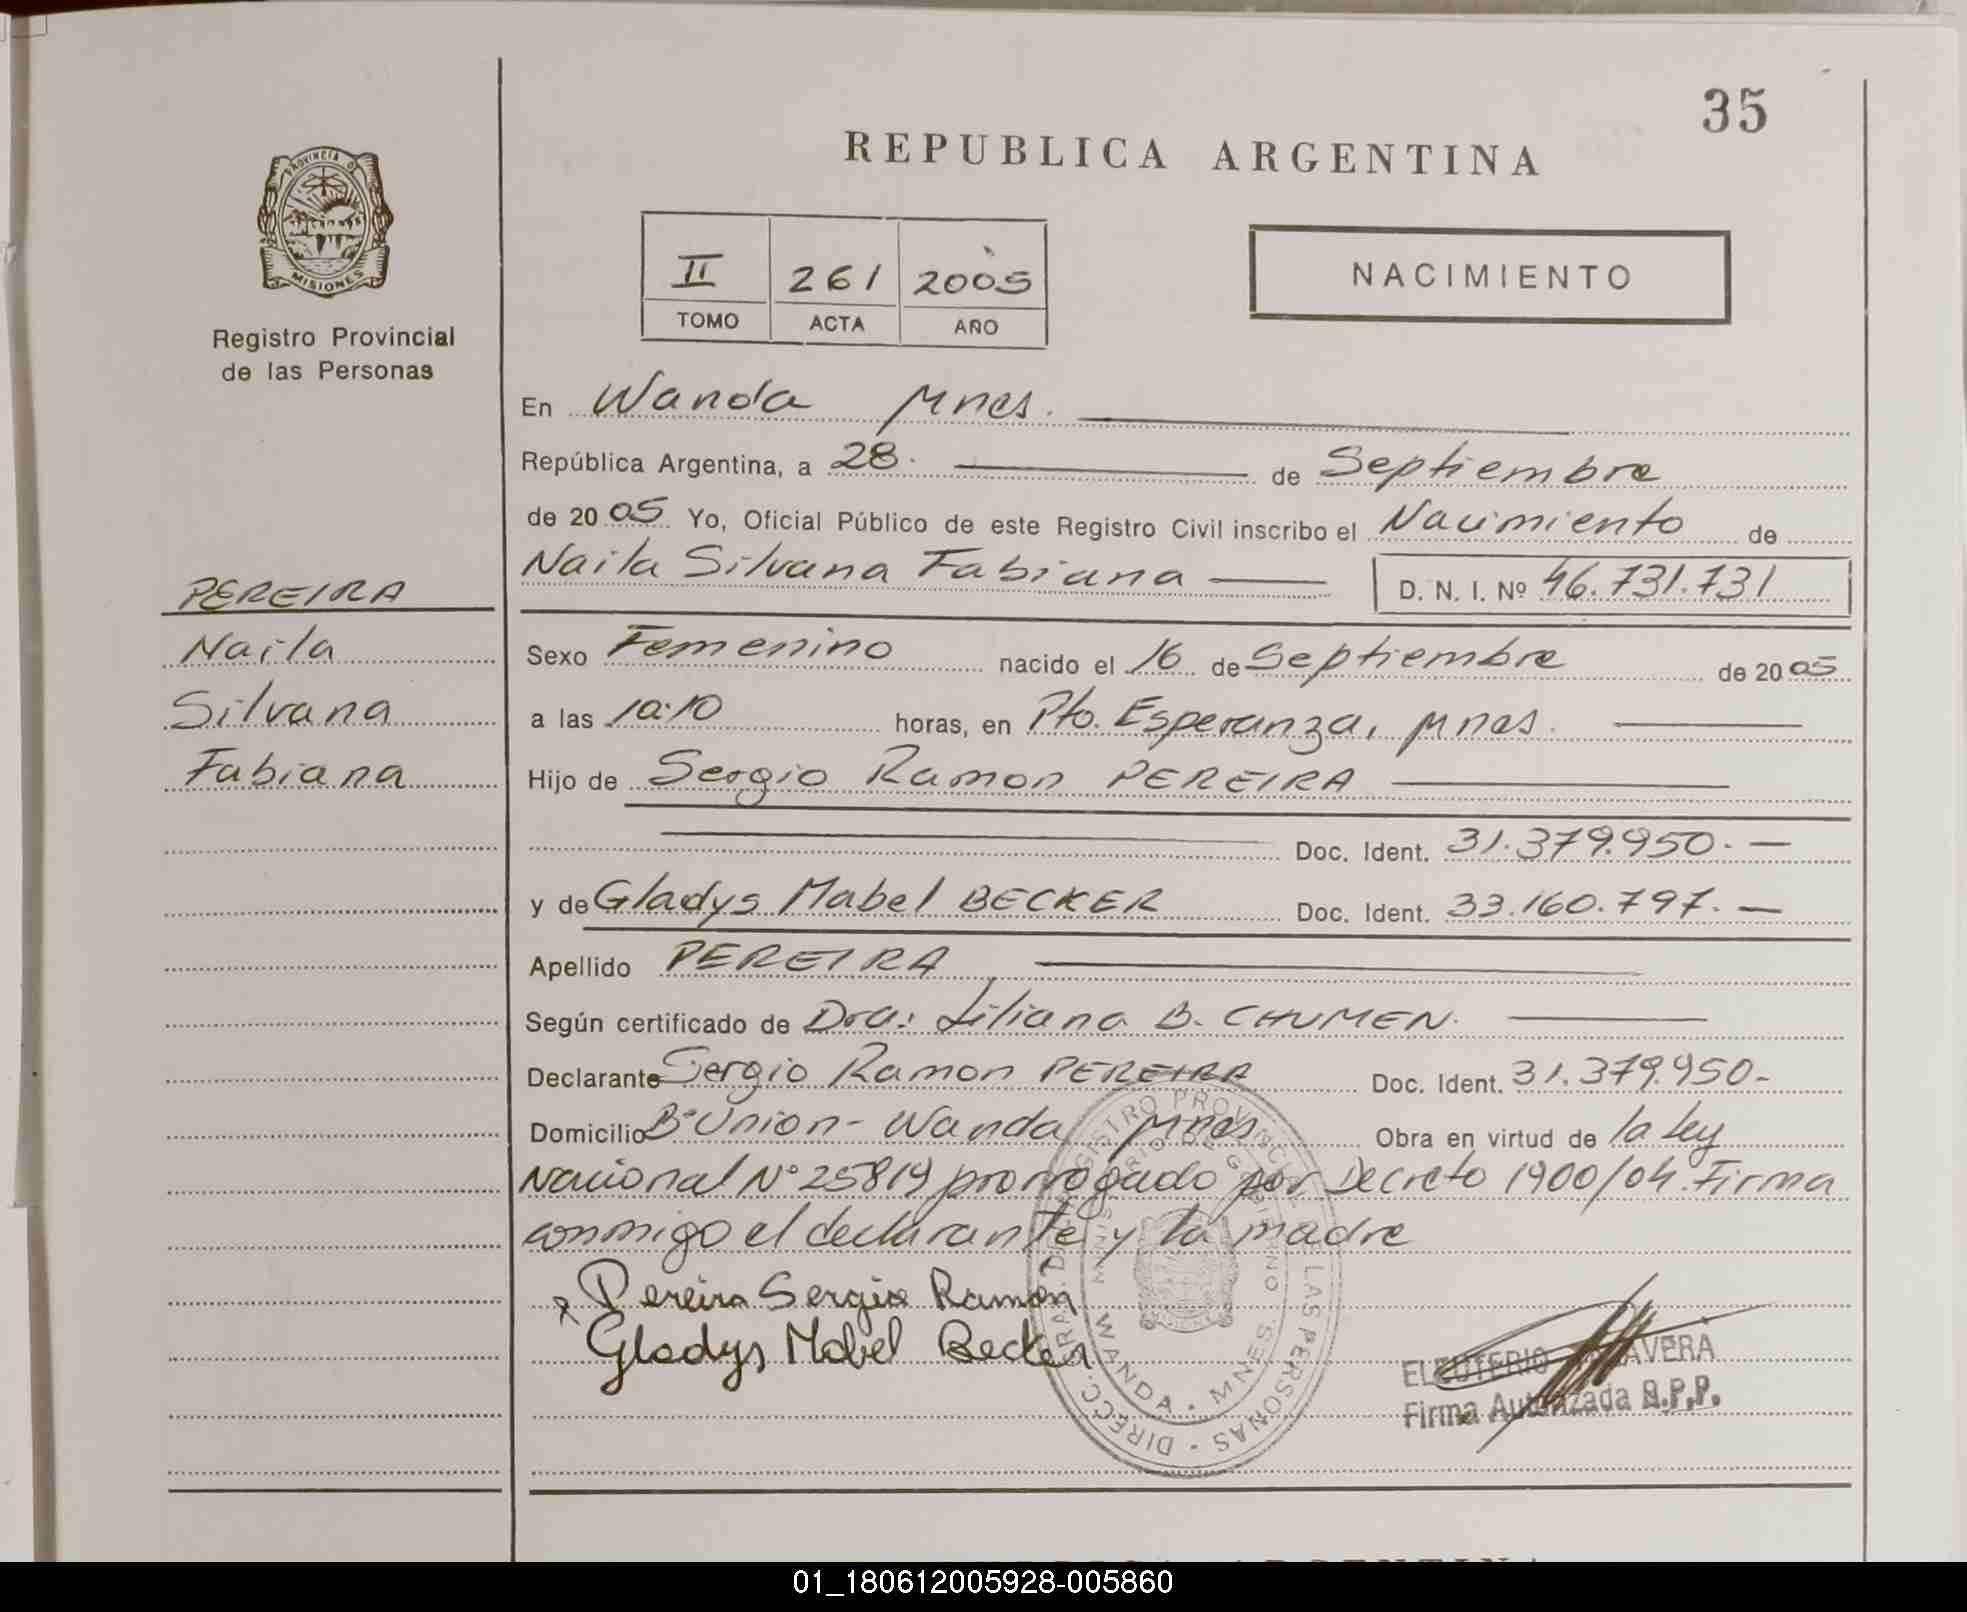 35
REPUBLICA ARGENTINA
PROVINCIA DE
MISIONES
Registro Provincial
de las Personas
II 261 2005
TOMO ACTA AÑO
NACIMIENTO
En Wanda Mnes.
República Argentina, a 28. de Septiembre
de 2005 Yo, Oficial Público de este Registro Civil inscribo el Nacimiento de
Naila Silvana Fabiana D. N. I. Nº 46.731.731
PEREIRA
Naila
Silvana
Fabiana
Sexo Femenino nacido el 16 de Septiembre de 2005
a las 10:10 horas, en Pto. Esperanza, Mnes.
Hijo de Sergio Ramon PEREIRA
Doc. Ident. 31.379.950.-
y de Gladys Mabel BECKER Doc. Ident. 33.160.797.-
Apellido PEREIRA
Según certificado de Dra: Liliana B. CHUMEN.
Declarante Sergio Ramon PEREIRA Doc. Ident. 31.379.950-
Domicilio Bº Union - Wanda Mnes Obra en virtud de la Ley
Nacional Nº 25819 prorrogado por Decreto 1900/04. Firma
conmigo el declarante y la madre
x Pereira Sergio Ramón
Gladys Mabel Becker
DIRECC. GRAL. DE REGISTRO PROVINCIAL DE LAS PERSONAS
MINISTERIO DE GOBIERNO
WANDA - MNES.
MISIONES
ELEUTERIO
Firma Autorizada R.P.P.
01_180612005928-005860